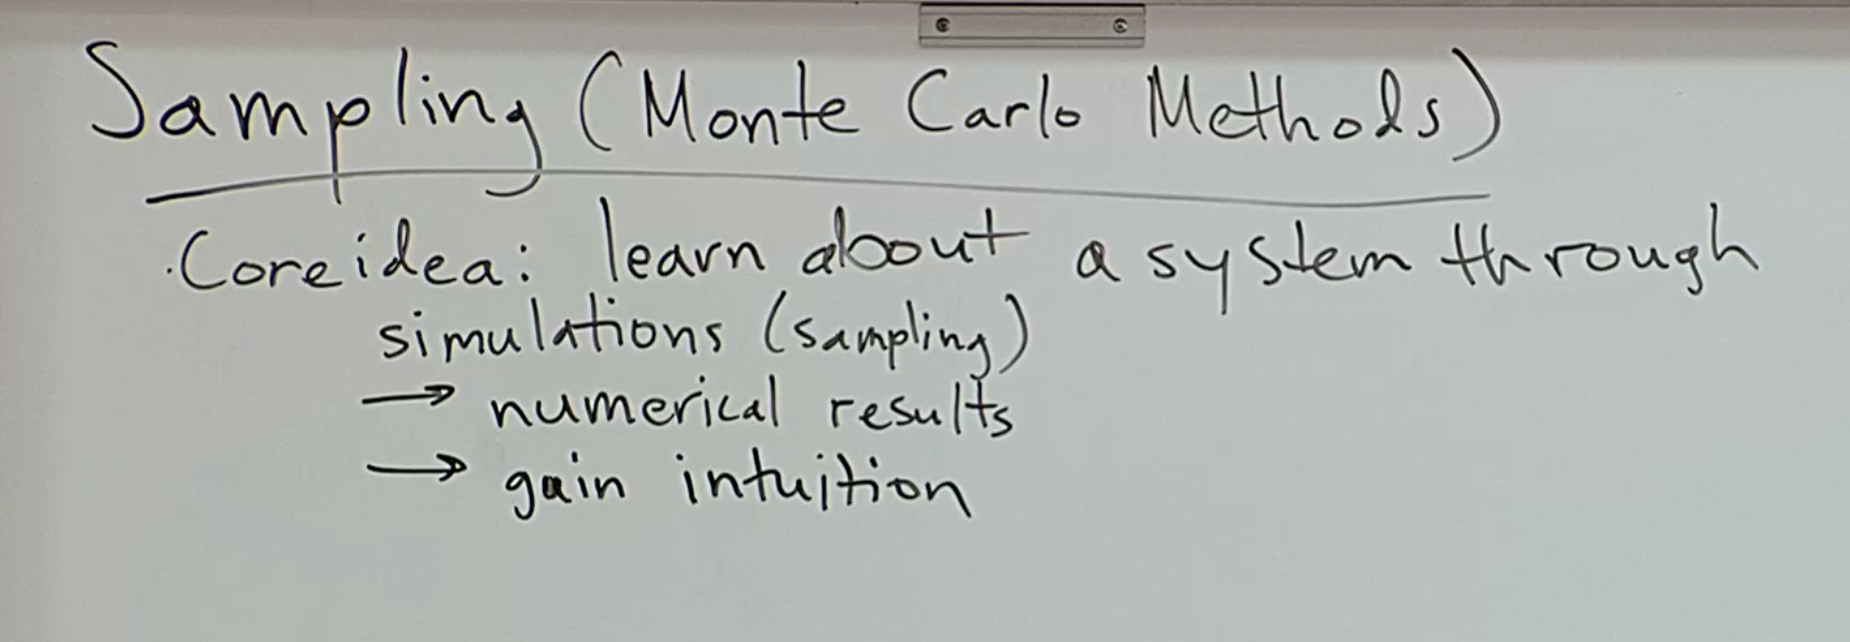 Sampling (Monte Carlo Methods)
· Core idea: learn about a system through
simulations (sampling)
→ numerical results
→ gain intuition